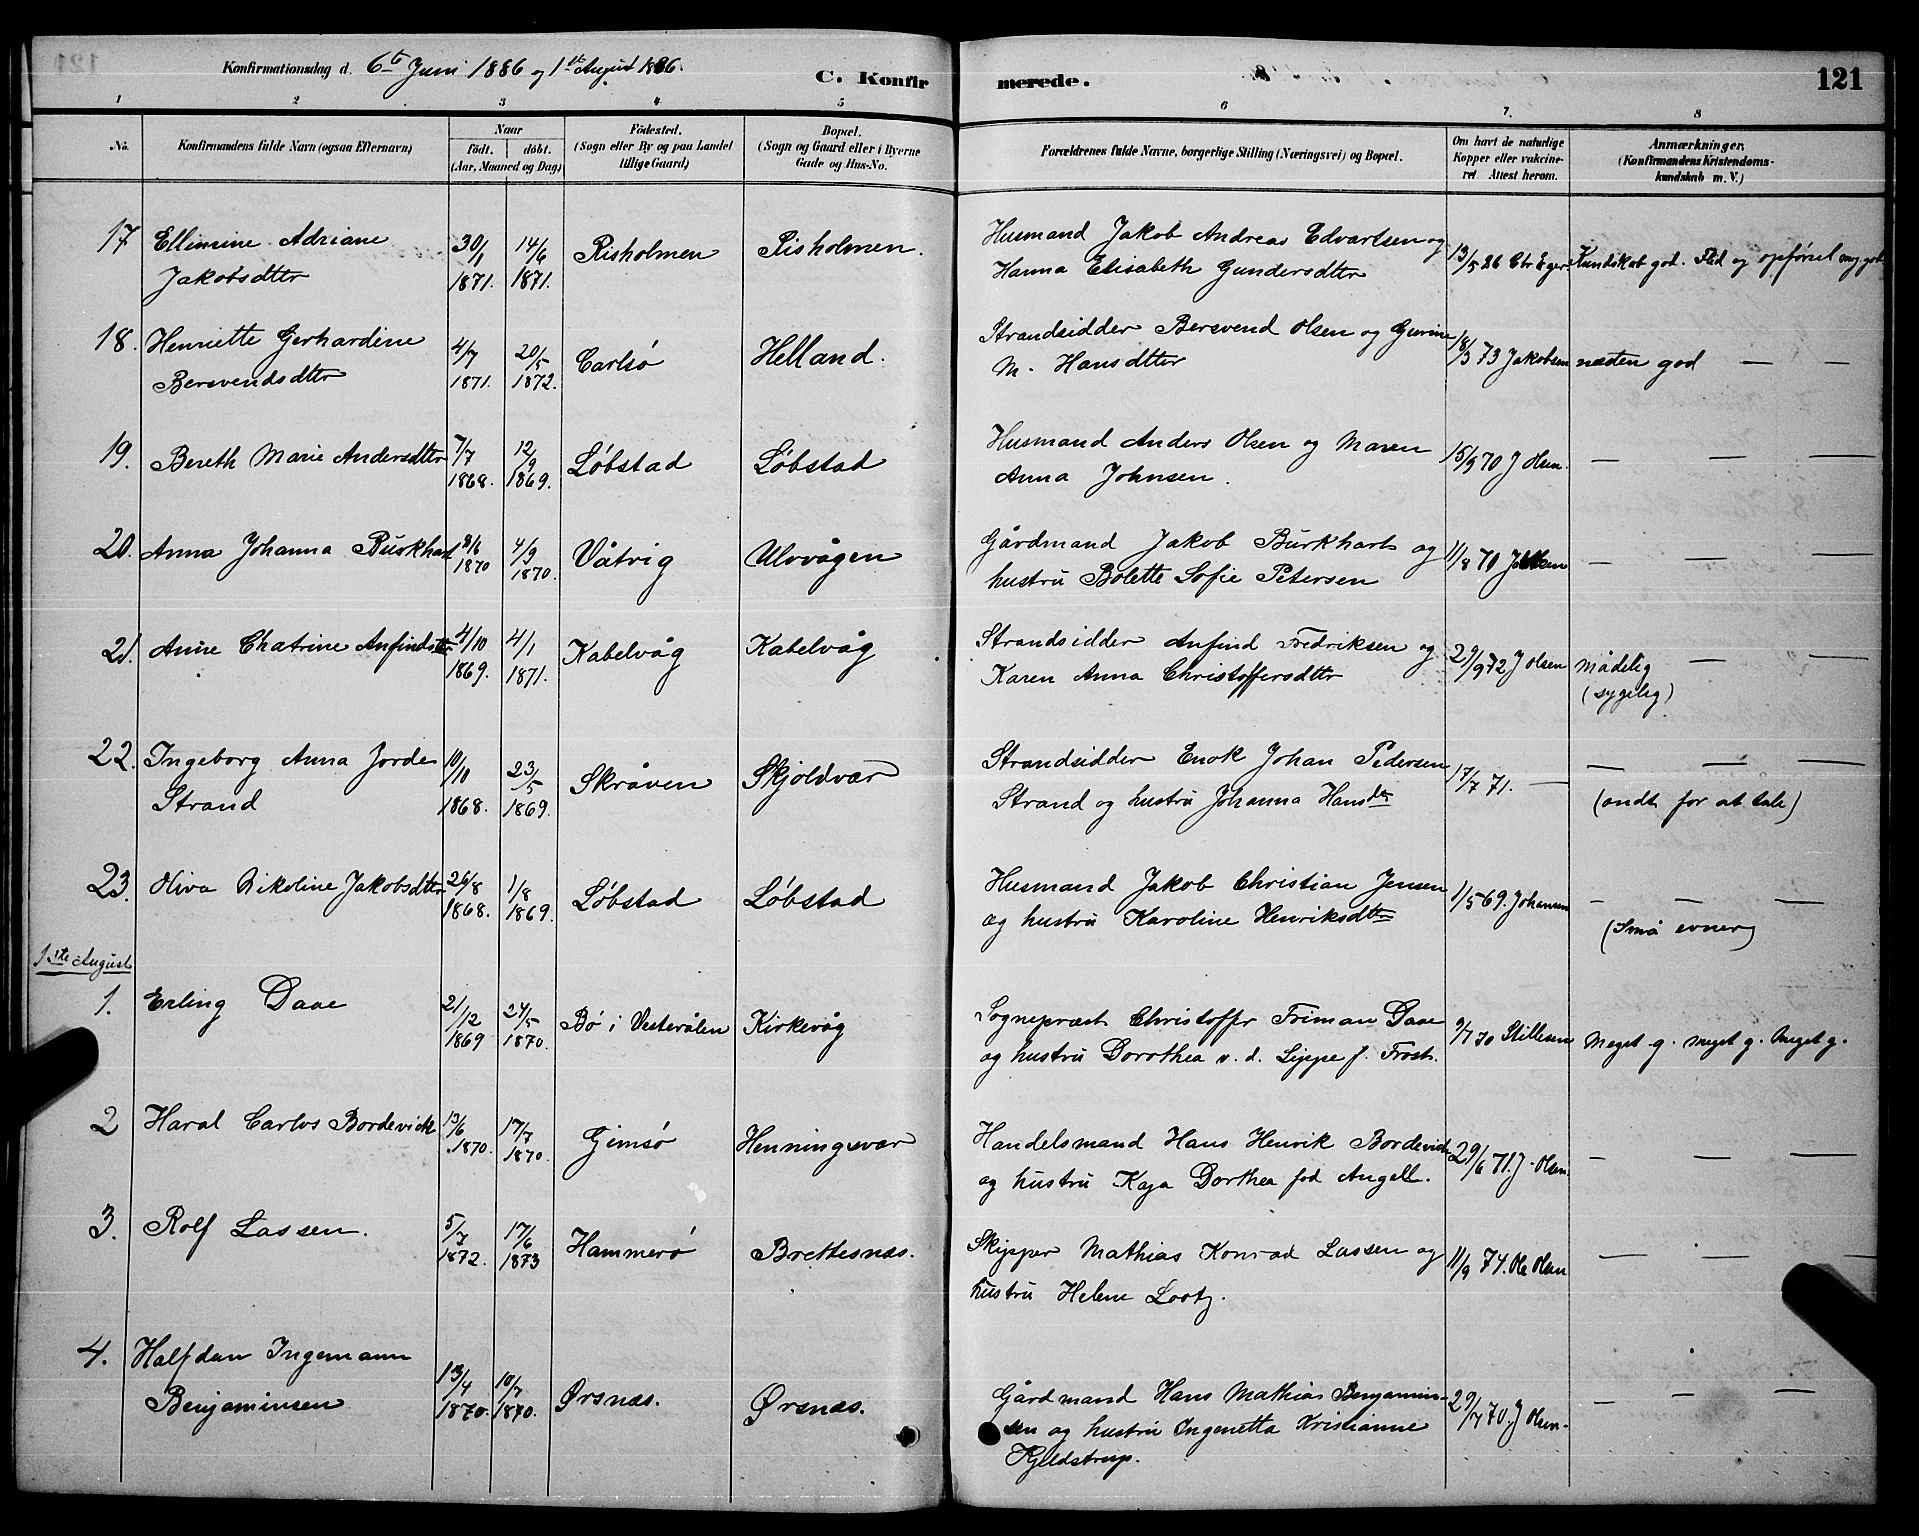 Konfirmationsdag d. 6te Juni 1886 og 1ste August 1886.
C. Konfirmerede.
121
1 2 3 4 5 6 7. 8
No. Konfirmandens fulde Navn (ogsaa Efternavn) Naar født. døbt. (Aar, Maaned og Dag) Fødested. (Sogn eller By og paa Landet tillige Gaard) Bopæl. (Sogn og Gaard eller i Byerne Gade og Hus-No. Forældrenes fulde Navne, borgerlige Stilling (Næringsvei) og Bopæl. Om havt de naturlige Kopper eller vakcineret. Attest herom. Anmærkninger. (Konfirmandens Kristendomskundskab m. V.)
17 Ellensine Adriane 30/1 14/6 Risholmen Risholmen. Husmand Jakob Andreas Edvartsen og 13/5 86 Chr Eger Kundskab god. Flid og opførsel meg god
Jakobsdtter 1871. 1871. Hanna Elisabeth Gundersdtter
18. Henriette Gerhardine 4/7 20/5 Carlsø Helland. Strandsidder Bersvend Olsen og Gurine 18/3 73 Jakobsen næsten god — —
Bersvendsdtter 1871. 1872. M. Hansdtter
19. Bereth Marie Andersdtter 7/7 12/9 Løbstad Løbstad Husmand Anders Olsen og Maren 15/9 70 J Olsen. — — —
1868. 1869. Anna Johnsen.
20. Anna Johanna Burkhart 8/6 4/9 Våtvig Ulvvågen Gårdmand Jakob Burkhart og 11/8 70 J Olsen — — —
1870 1870. hustru Bolette Sofie Petersen
21. Anne Chatrine Anfindsdtter 4/10 4/1 Kabelvåg Kabelvåg Strandsidder Anfind Fredriksen og 29/9 72 J Olsen mådelig — —
1869. 1871. Karen Anna Christoffersdtter (sygelig)
22. Ingeborg Anna Jorde 10/10 23/5 Skråven Skjoldvær Strandsidder Enok Johan Pedersen 17/7 71. — — — —
Strand 1868. 1869. Strand og hustru Johanna Hansdtr (ondt for at tale)
23. Oliva Nikoline Jakobsdtter 26/8 1/8 Løbstad Løbstad Husmand Jakob Christian Jensen 1/5 69. Johansen — — —
1868. 1869. og hustru Karoline Henriksdtter (Små evner)
1ste August
1. Erling Daae 21/12 24/5 Bø i Vesterålen Kirkevåg Sognepræst Christoffer Friman Daae 9/7 70 Stillesen Meget g. meget g. Meget g.
1869 1870. og hustru Dorothea v. d. Lippe f. Frost.
2 Haral Carlos Bordevick 13/6 17/7 Gimsø Henningsvær Handelsmand Hans Henrik Bordevick 29/6 71. J. Olsen — — —
1870. 1870. og hustru Kaja Dorthea fød Angell.
3. Rolf Lassen. 5/7 17/6 Hammerø Brettesnæs. Skipper Mathias Konrad Lassen og 11/9 74. Ole Olsen — — —
1872. 1873 hustru Helene Lootz.
4. Halfdan Ingemann 13/4 10/7 Ørsnæs. Ørsnæs. Gårdmand Hans Mathias Benjamin- 29/7 70. J Olsen — — —
Benjaminsen 1870. 1870. sen og hustru Ingenetta Kristianne
Kjeldstrup.